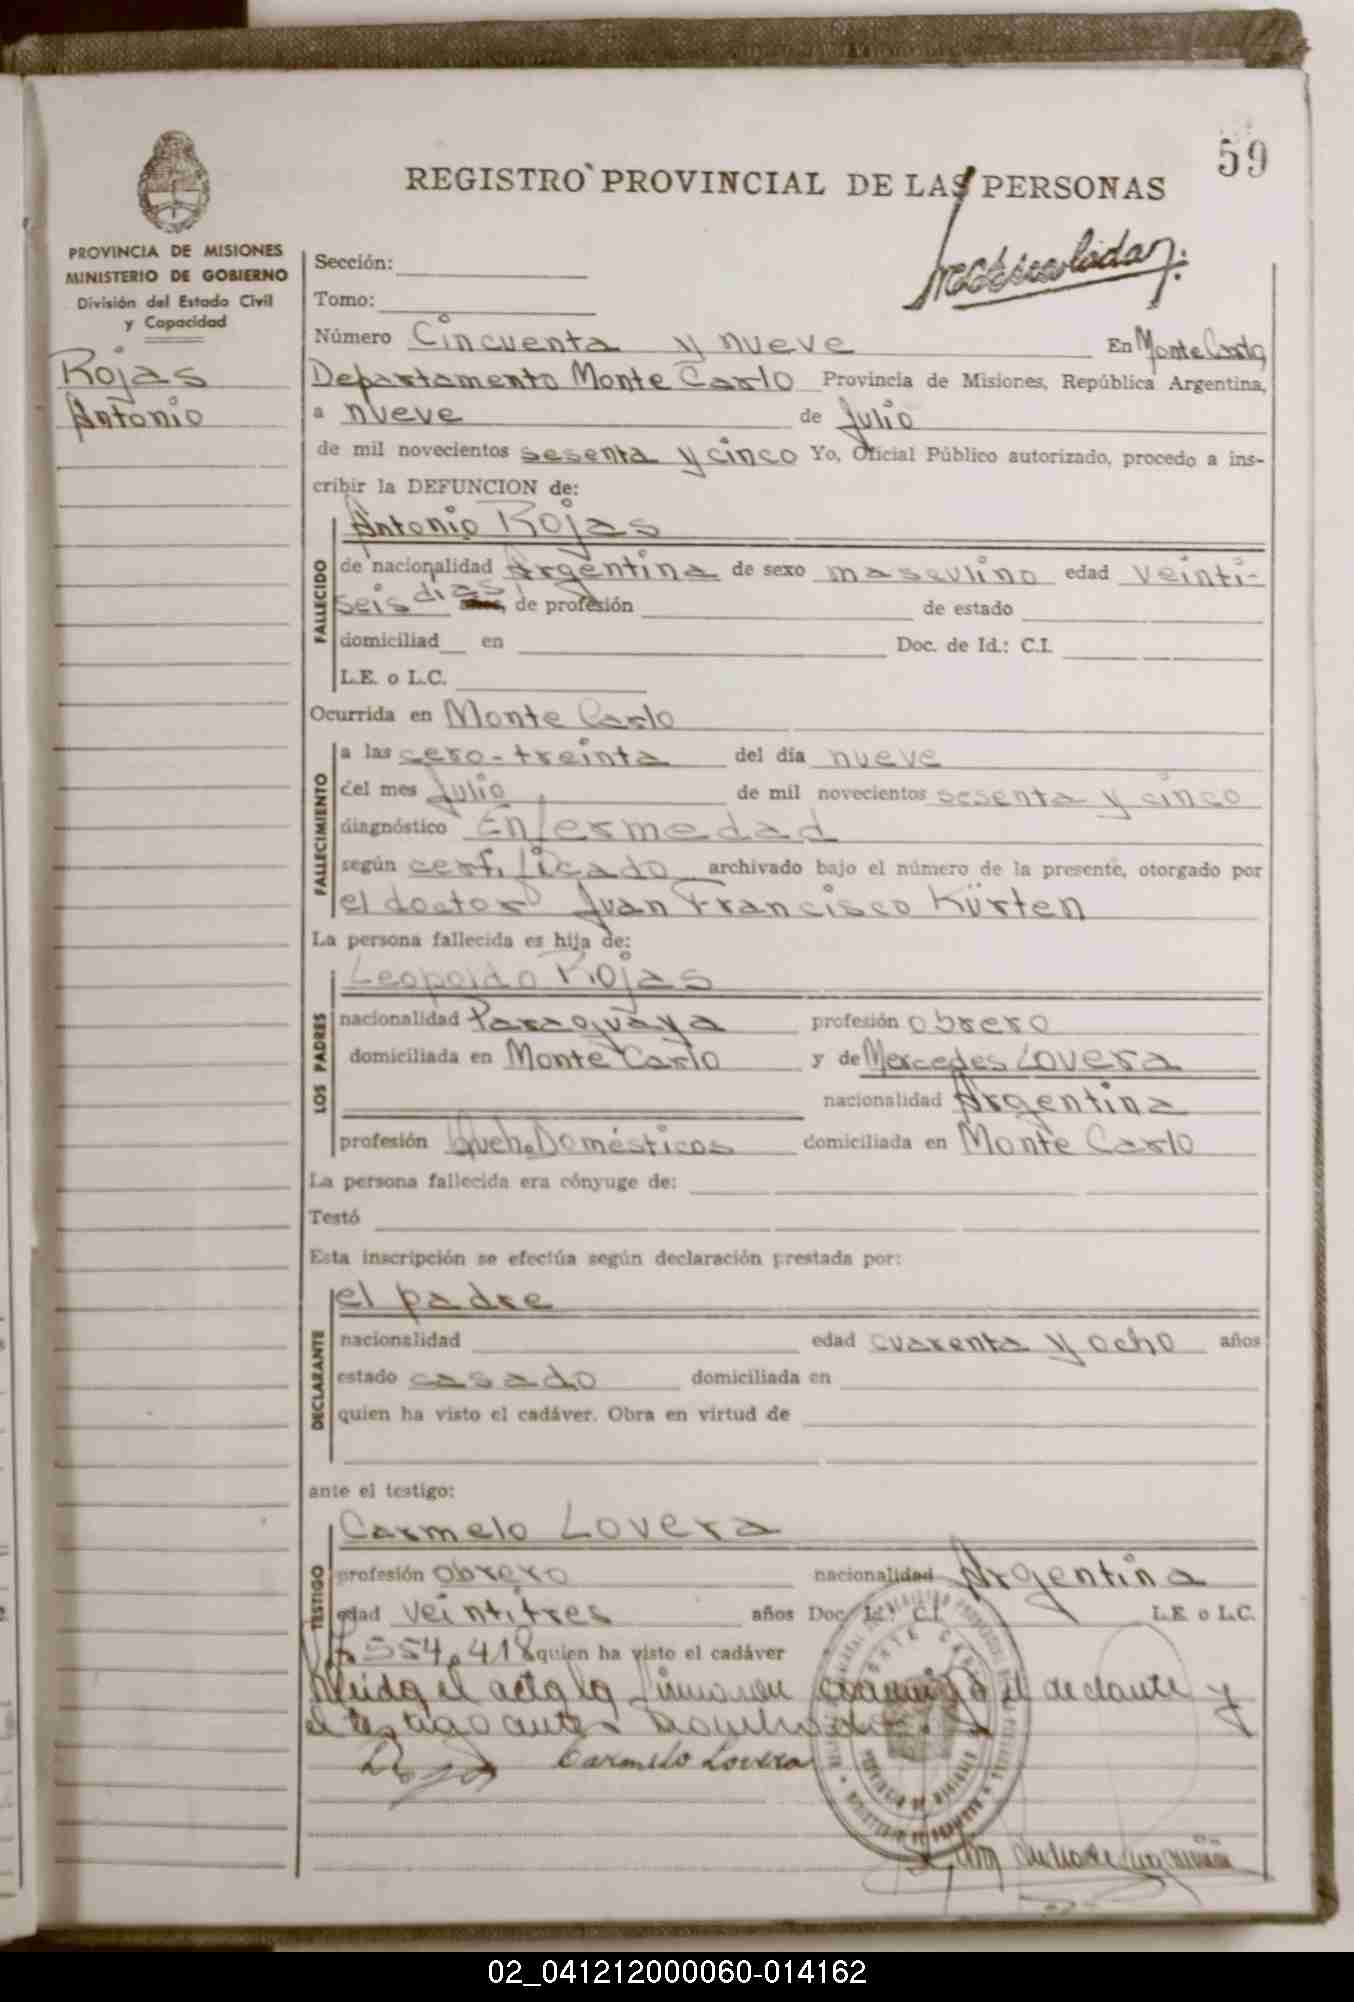 59
REGISTRO PROVINCIAL DE LAS PERSONAS
PROVINCIA DE MISIONES
MINISTERIO DE GOBIERNO
División del Estado Civil
y Capacidad
Rojas
Antonio
Sección:
Tomo:
Número Cincuenta y nueve En Monte Carlo,
Departamento Monte Carlo Provincia de Misiones, República Argentina,
a nueve de Julio
de mil novecientos sesenta y cinco Yo, Oficial Público autorizado, procedo a ins-
cribir la DEFUNCION de:
Antonio Rojas
FALLECIDO
de nacionalidad Argentina de sexo masculino edad veinti-
seis dias, de profesión de estado
domiciliad en Doc. de Id.: C.I.
L.E. o L.C.
Ocurrida en Monte Carlo
FALLECIMIENTO
a las cero-treinta del día nueve
del mes Julio de mil novecientos sesenta y cinco
diagnóstico Enfermedad
según certificado archivado bajo el número de la presente, otorgado por
el doctor Juan Francisco Kürten
La persona fallecida es hija de:
Leopoldo Rojas
LOS PADRES
nacionalidad Paraguaya profesión obrero
domiciliada en Monte Carlo y de Mercedes Lovera
nacionalidad Argentina
profesión Queh. Domésticos domiciliada en Monte Carlo
La persona fallecida era cónyuge de:
Testó
Esta inscripción se efectúa según declaración prestada por:
el padre
DECLARANTE
nacionalidad edad cuarenta y ocho años
estado casado domiciliada en
quien ha visto el cadáver. Obra en virtud de
ante el testigo:
Carmelo Lovera
TESTIGO
profesión obrero nacionalidad Argentina
edad veintitres años Doc. Id.: C.I. L.E. o L.C.
554.418 quien ha visto el cadáver
el acta la firmaron el declante y
el testigo antes
Carmelo Lovera
02_041212000060-014162